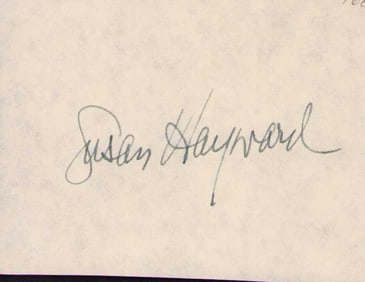 Susan Hayward